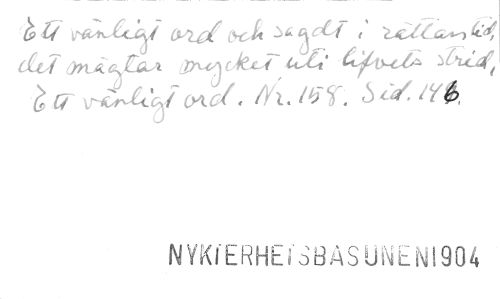 Ett vänligt ord och sagdt i rättan tid,
det mägtar mycket uti lifvets strid,
Ett vänligt ord. Nr. 158. Sid. 146.
NYKTERHETSBASUNEN 1904